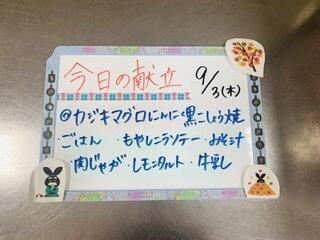 今日の献立
9/3(木)
@カジキマグロにんにく黒こしょう焼
ごはん・もやしニラソテー・おみそ汁
肉じゃが・レモンタルト・牛乳